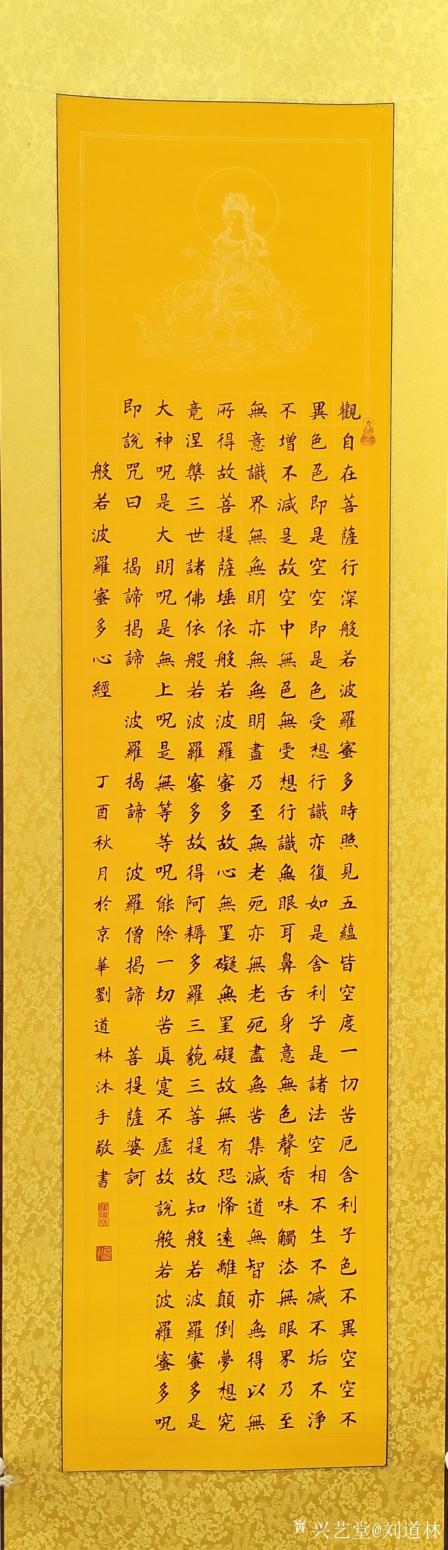 觀自在菩薩行深般若波羅蜜多時照見五蘊皆空度一切苦厄舍利子色不異空空不
異色色即是空空即是色受想行識亦復如是舍利子是諸法空相不生不滅不垢不淨
不增不減是故空中無色無受想行識無眼耳鼻舌身意無色聲香味觸法無眼界乃至
無意識界無無明亦無無明盡乃至無老死亦無老死盡無苦集滅道無智亦無得以無
所得故菩提薩埵依般若波羅蜜多故心無罣礙無罣礙故無有恐怖遠離顛倒夢想究
竟涅槃三世諸佛依般若波羅蜜多故得阿耨多羅三藐三菩提故知般若波羅蜜多是
大神呪是大明呪是無上呪是無等等呪能除一切苦真寔不虛故說般若波羅蜜多呪
即說咒曰 揭諦揭諦 波羅揭諦 波羅僧揭諦 菩提薩婆訶
般若波羅蜜多心經 丁酉秋月於京華劉道林沐手敬書
兴艺堂@刘道林